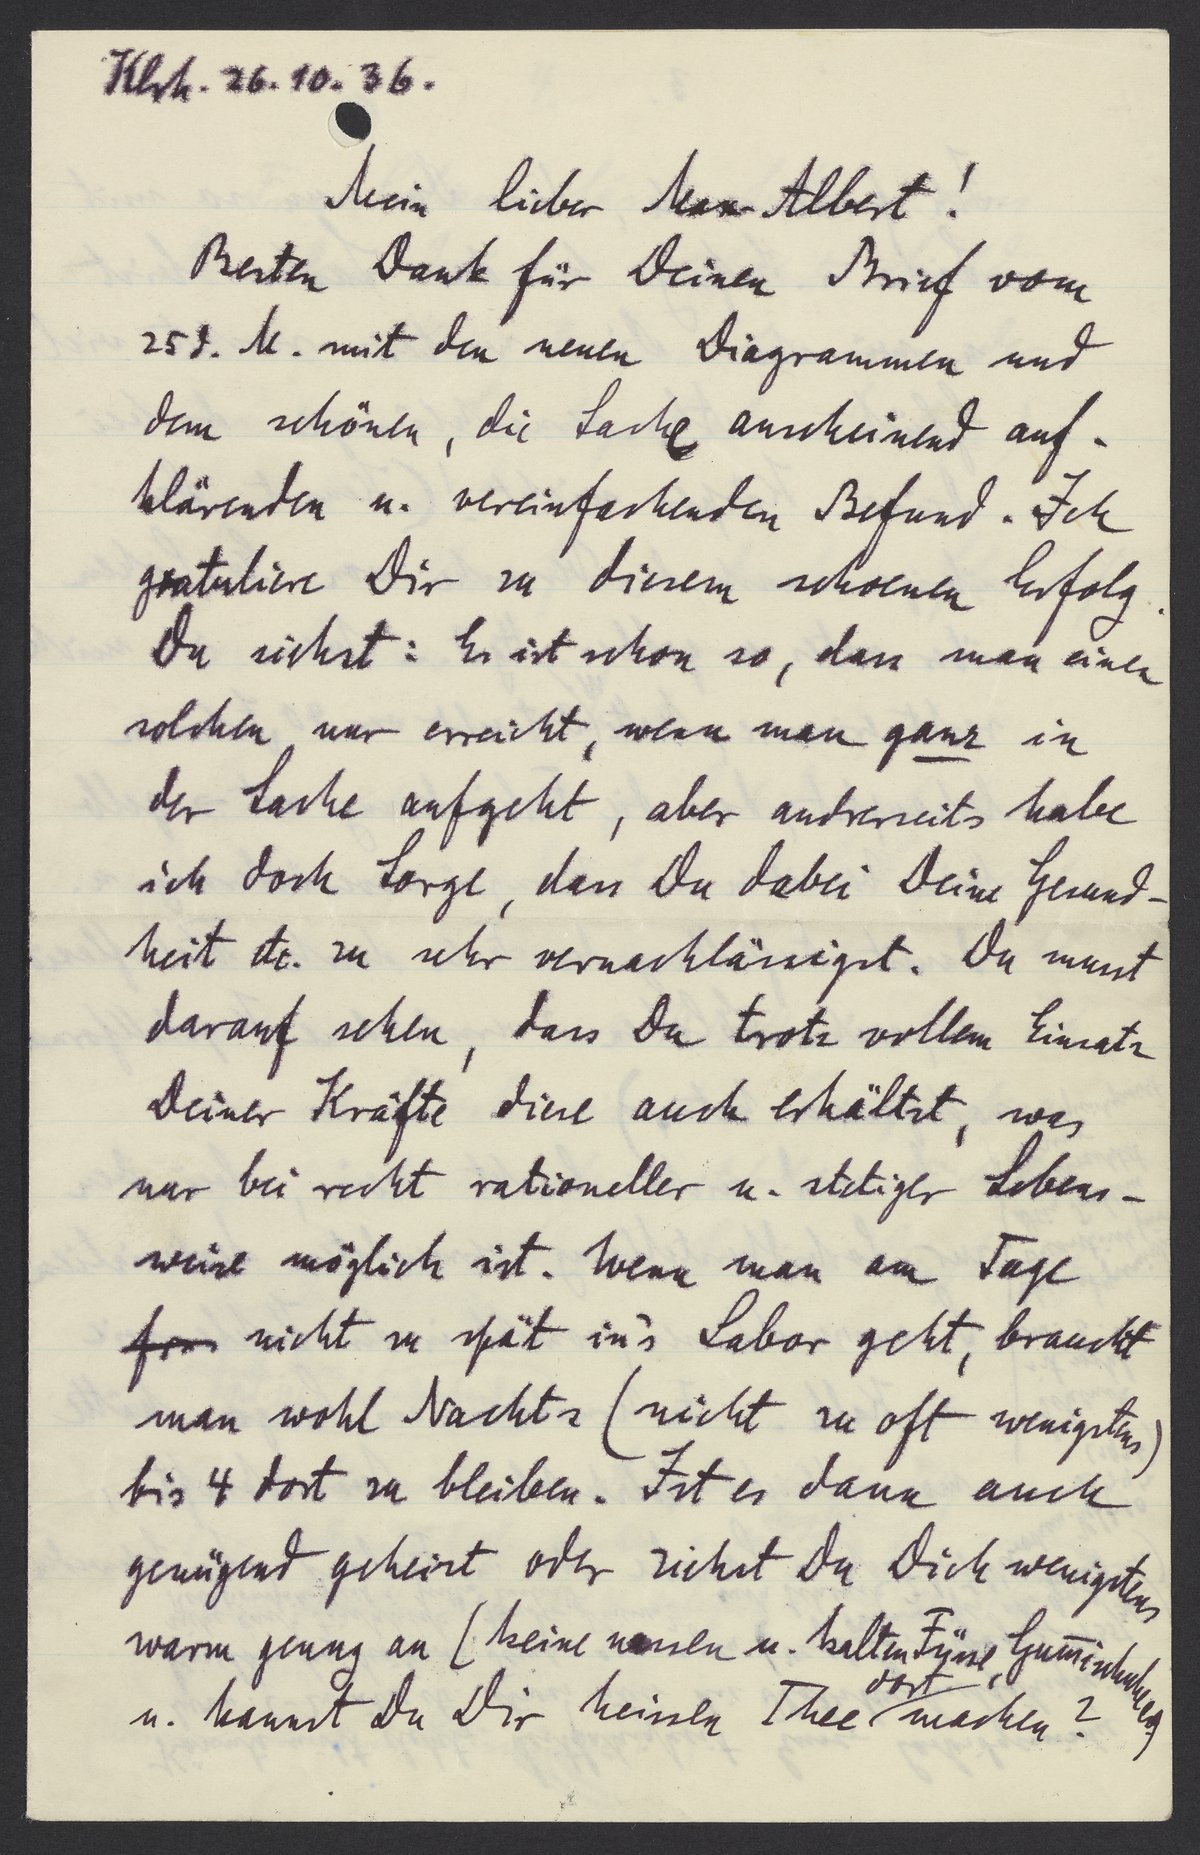 Klsh. 26.10.36.
Mein lieber Max Albert!
Besten Dank für Deinen Brief vom
25 d. M. mit den neuen Diagrammen und
dem schönen, die Sache anscheinend auf-
klärenden u. vereinfachenden Befund. Ich
gratuliere Dir zu diesem schoenen Erfolg.
Du siehst: Es ist schon so, dass man einen
solchen nur erreicht, wenn man ganz in
der Sache aufgeht, aber andrerseits habe
ich doch Sorge, dass Du dabei Deine Gesund-
heit etc. zu sehr vernachlässigst. Du musst
darauf sehen, dass Du trotz vollem Einsatz
Deiner Kräfte diese auch erhältst, was
nur bei recht rationeller u. stetiger Lebens-
weise möglich ist. Wenn man am Tage
nicht zu spät in's Labor geht, braucht
man wohl Nachts (nicht zu oft wenigstens)
bis 4 dort zu bleiben. Ist es dann auch
genügend geheizt oder ziehst Du Dich wenigstens
warm genug an (keine nassen u. kalten Füsse, Gummischuhe)
u. kannst Du Dir heissen Thee dort machen?